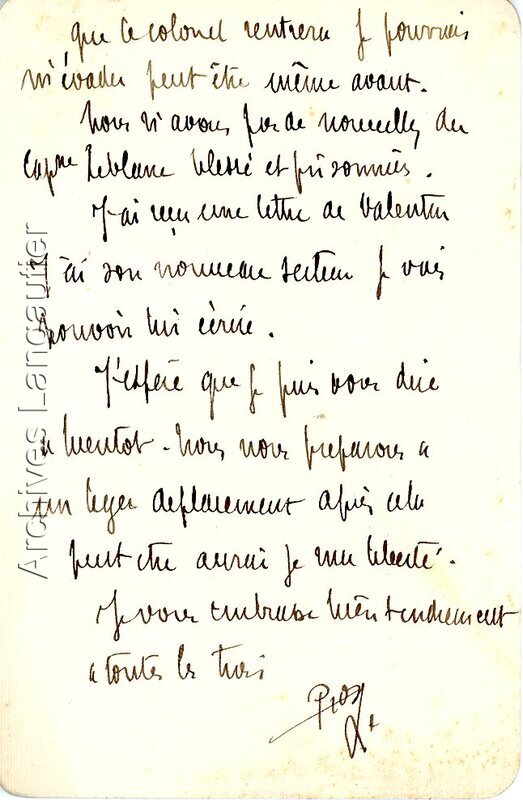 que le colonel rentrera je pourrais
m'évader peut être même avant.
Nous n'avons pas de nouvelles du
Capne Leblanc blessé et prisonnier.
J'ai reçu une lettre de Valentin
J'ai son nouveau secteur je vais
pouvoir lui écrire.
J'espère que je puis vous dire
a bientot - Nous nous preparons a
un leger deplacement après cela
peut etre aurai je ma liberté.
Je vous embrasse bien tendrement
a toutes les trois
Archives Langautier